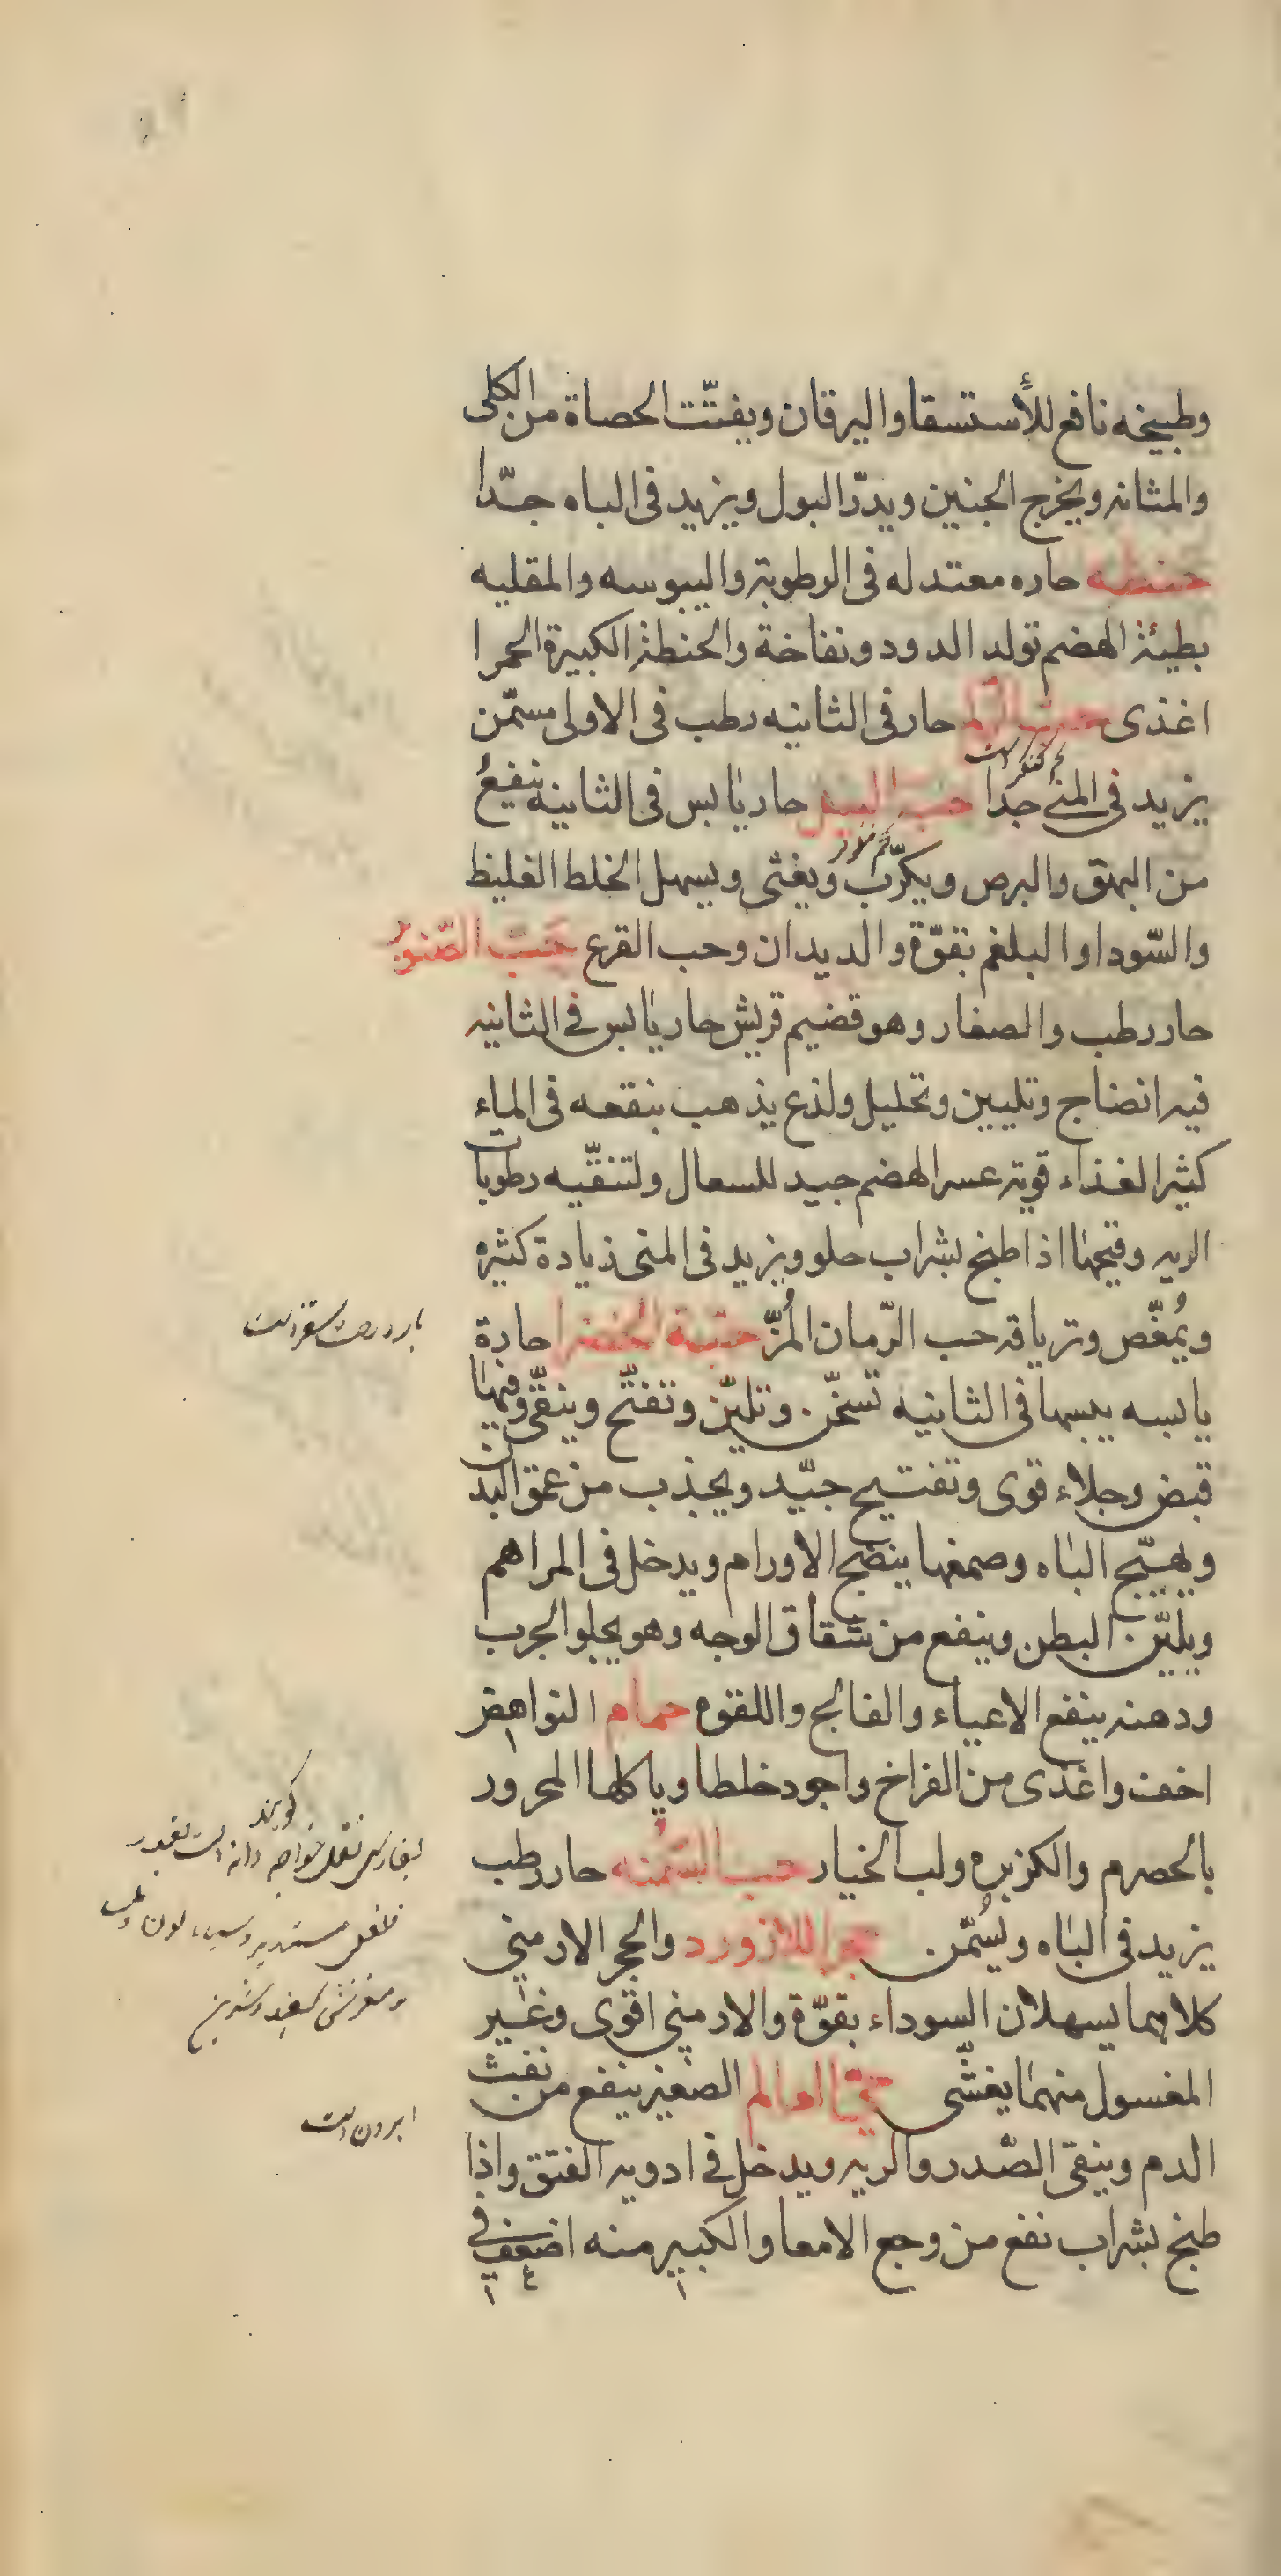 وطبيخه نافع للأستسقا واليرقان ويفتّت الحصاة من الكلى
والمثانه ويخرج الجنين ويدرّ البول ويزيد فى الباه جدّا
حنطه حاره معتدله فى الرطوبة واليبوسه والمقليه
بطيئة الهضم تولد الدود ونفاخة والحنطة الكبيرة الحمرا
اغذى حب الزلم حار فى الثانيه رطب فى الاولى مسمّن
يزيد فى المنى جدا حب النيل حار يابس فى الثانيه ينفع
من البهق والبرص ويكرّب ويغثى ويسهل الخلط الغليظ
والسّودا والبلغم بقوّة والديدان وحب القرع حبّ الصّنوبر
حار رطب والصغار وهو قضيم قريش حار يابس فى الثانيه
فيه انضاج وتليين وتحليل ولذع يذهب بنقعه فى الماء
كثير الغذاء قويه عسر الهضم جيد للسعال ولتنقّيه رطوبات
الريه وقيحها اذا طبخ بشراب حلو ويزيد فى المنى زيادة كثيره
ويُمغّص وترياقه حب الرّمان المُزّ حبّة الخضرا حارة
يابسه يبسها فى الثانيه تسخّن وتليّن وتفتّح وينقّى وفيها
قبض وجلاء قوى وتفتيح جيّد ويجذب من عمق البدن
ويهيّج الباه وصمغها ينضج الاورام ويدخل فى المراهم
ويليّن البطن وينفع من شقاق الوجه وهو يجلو الجرب
ودهنه ينفع الاعياء والفالج واللقوه حمام النواهض
اخف واغذى من الفراخ واجود خلطا وياكلها المحرور
بالحصرم والكزبره ولب الخيار حب السّمنه حار رطب
يزيد فى الباه ويُسمّن حجر اللازورد والحجر الارمني
كلاهما يسهلان السوداء بقوّة والارمني اقوى وغير
المغسول منهما يغثّى حىّ العالم الصغير ينفع من نفث
الدم وينقى الصّدر والريه ويدخل فى ادويه الفتق واذا
طبخ بشراب نفع من وجع الامعا والكبير منه اضعف فى
بفارسى نقل خواجه گويند دانه است بقدر
فلفل مستدير وسياه لون
ومغزش سفيد وشيرين